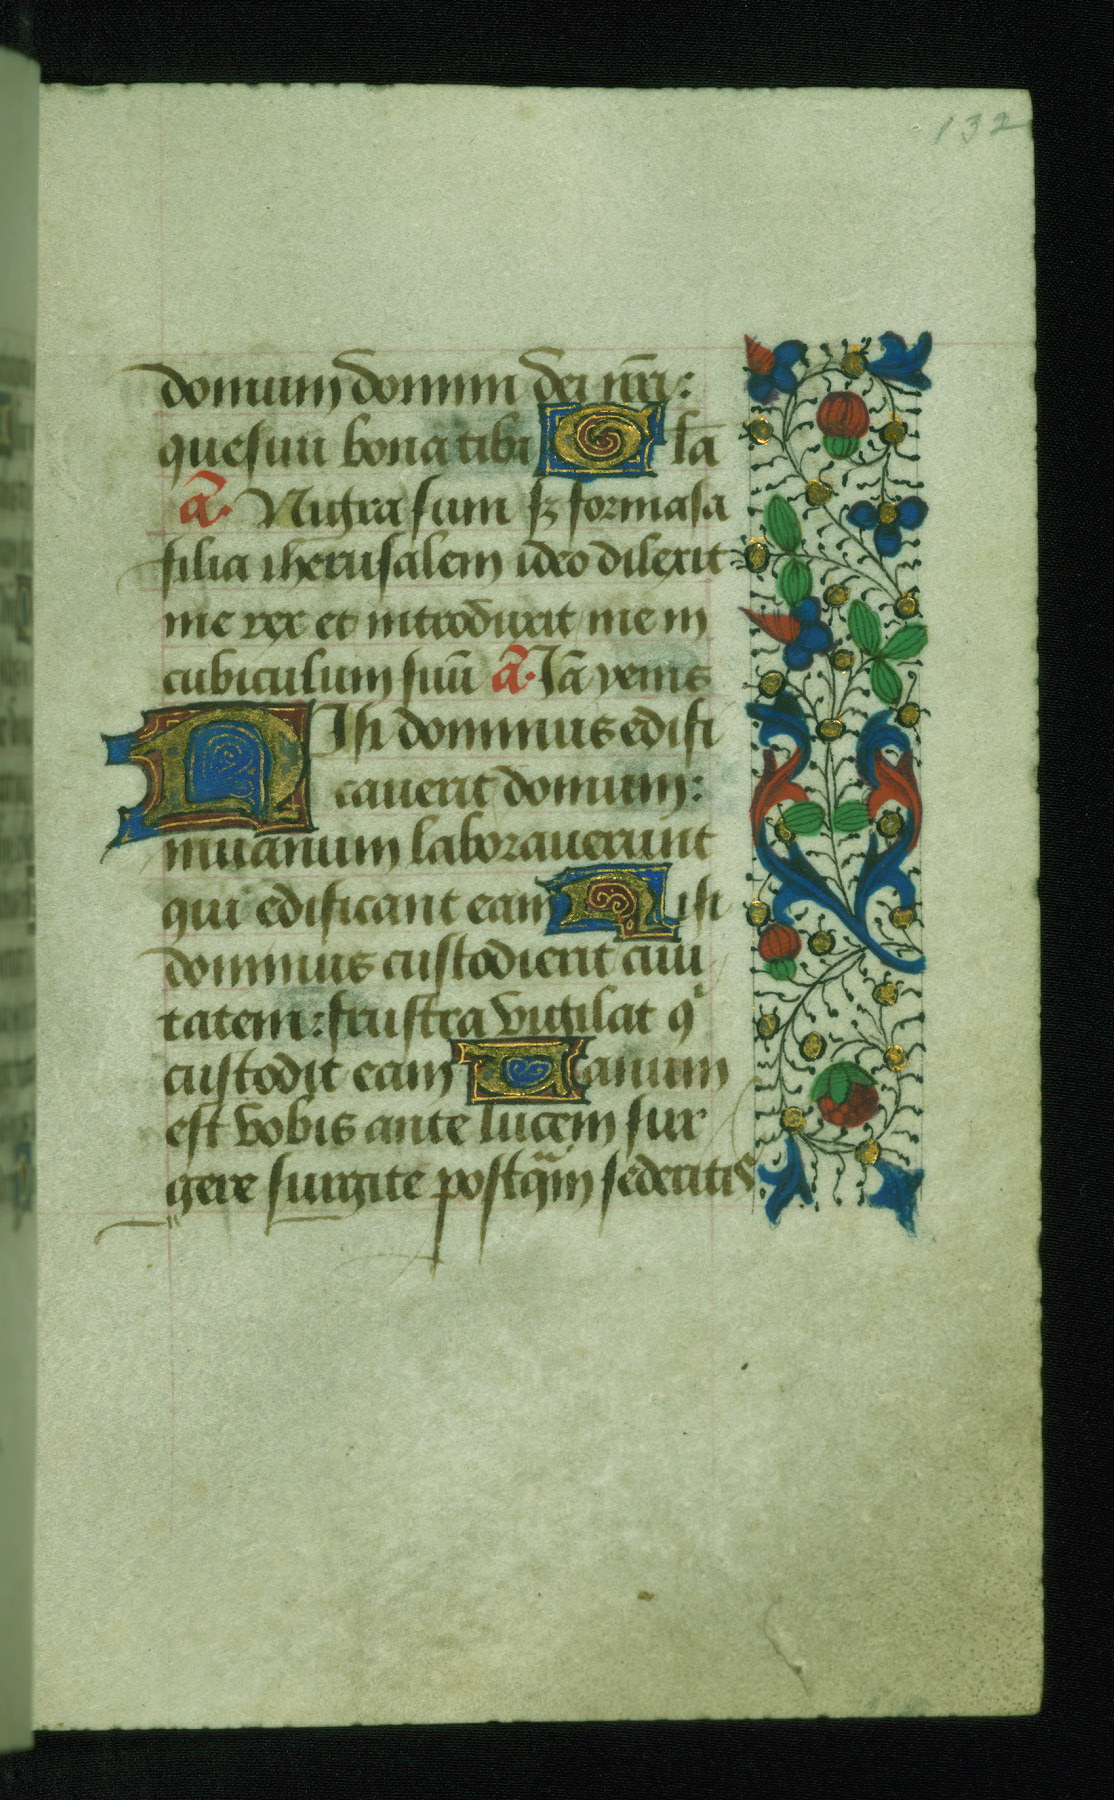 132
domum domini dei nr̄i:
quesiui bona tibi G la̅
a̅. Nigra sum sꝫ formasa
filia iherusalem ideo dilexit
me rex et introduxit me in
cubiculum suu̅ a̅. Ia̅ yems
NIsi dominus edifi
cauerit domum:
in uanum laborauerunt
qui edificant eam Nisi
dominus custodierit ciui
tatem: frustra vigilat qͥ
custodit eam Uanum
est vobis ante lucem sur
gere surgite postq̃m sederitis